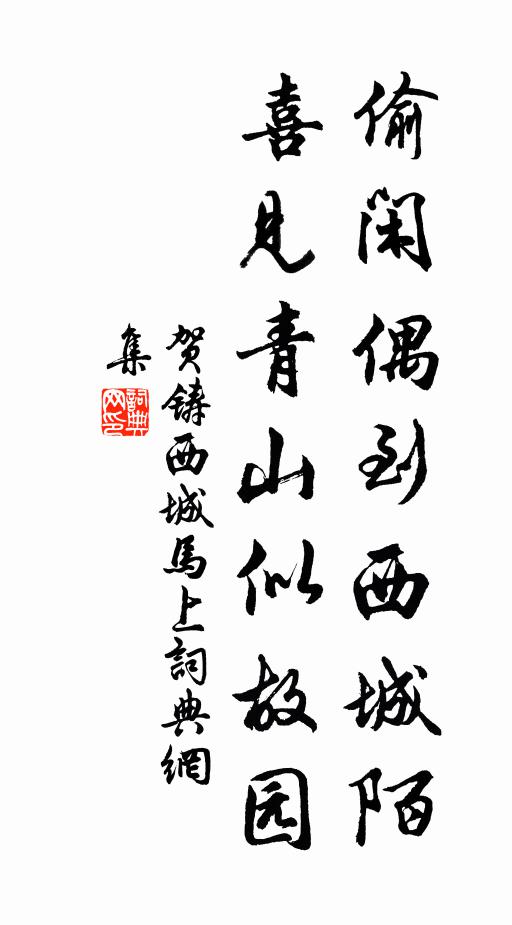 偷闲偶到西城陌
喜见青山似故园
贺铸西城馬上詞典網
集
詞典网印